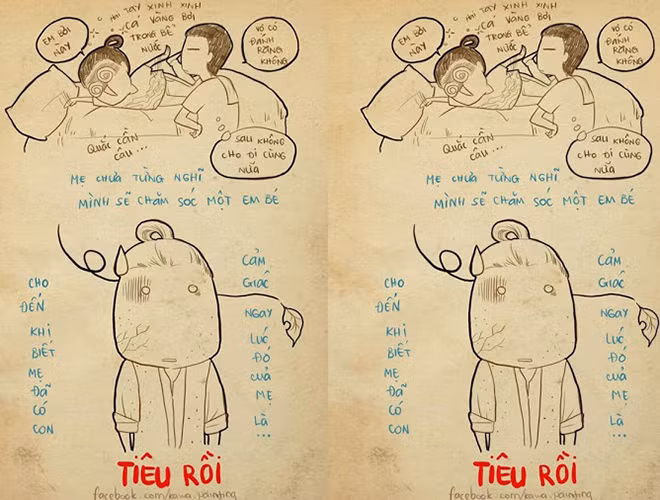 EM BƠI NÀY
HAI TAY XINH XINH
CÁ VÀNG BƠI
TRONG BỂ NƯỚC
VỢ CÓ ĐÁNH RĂNG KHÔNG
QUẮC CẦN CÂU ...
SAU KHÔNG CHO ĐI CÙNG NỮA
MẸ CHƯA TỪNG NGHĨ
MÌNH SẼ CHĂM SÓC MỘT EM BÉ
CHO
ĐẾN
KHI
BIẾT
MẸ
ĐÃ
CÓ
CON
CẢM
GIÁC
NGAY
LÚC
ĐÓ
CỦA
MẸ
LÀ
...
TIÊU RỒI
facebook.com/kawa.painting
EM BƠI NÀY
HAI TAY XINH XINH
CÁ VÀNG BƠI
TRONG BỂ NƯỚC
VỢ CÓ ĐÁNH RĂNG KHÔNG
QUẮC CẦN CÂU ...
SAU KHÔNG CHO ĐI CÙNG NỮA
MẸ CHƯA TỪNG NGHĨ
MÌNH SẼ CHĂM SÓC MỘT EM BÉ
CHO
ĐẾN
KHI
BIẾT
MẸ
ĐÃ
CÓ
CON
CẢM
GIÁC
NGAY
LÚC
ĐÓ
CỦA
MẸ
LÀ
...
TIÊU RỒI
facebook.com/kawa.painting